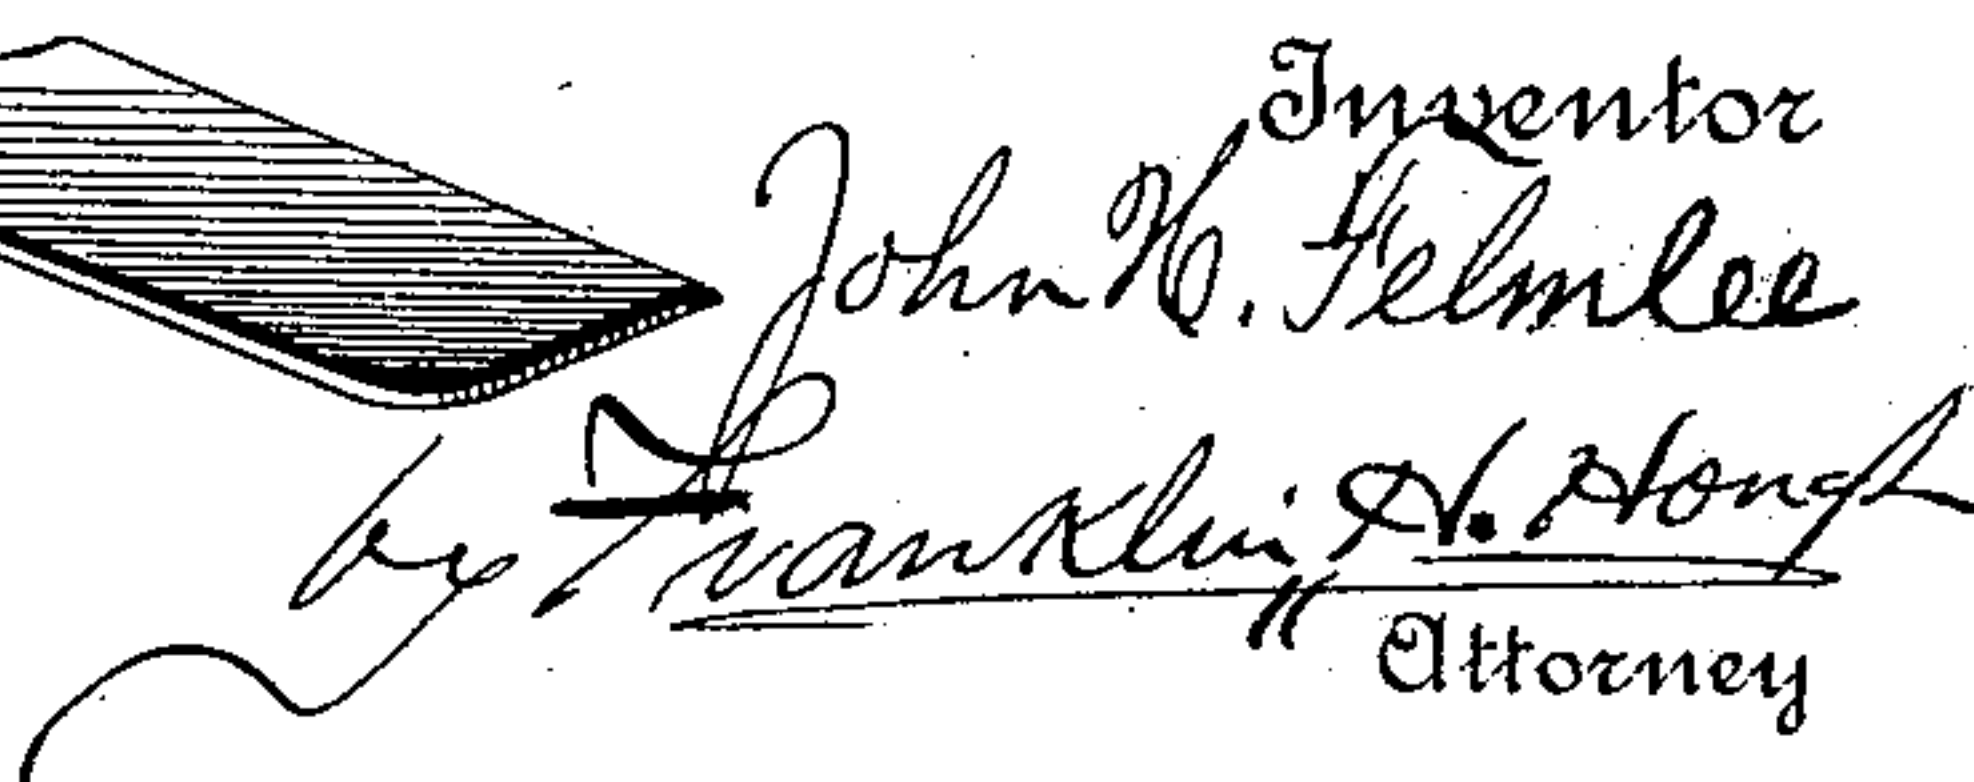 Inventor
John H. Felmlee
by Franklin H. Hough
Attorney